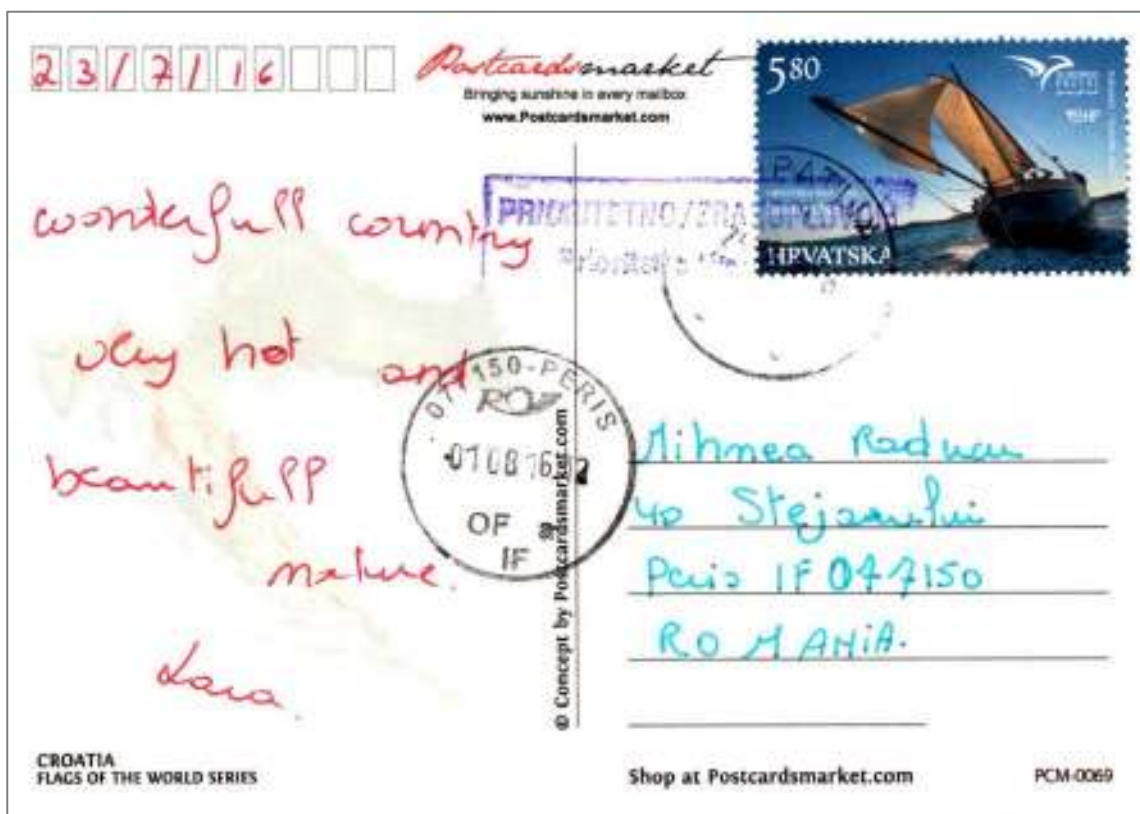 23/7/16
Postcardsmarket
Bringing sunshine in every mailbox
www.Postcardsmarket.com
5.80
HRVATSKA
wonderfull country
very hot and
beautifull
nature.
Lara.
077150-PERIS
01 08 16
OF
IF
© Concept by Postcardsmarket.com
Mihnea Raducu
40 Stejarului
Peris IF 077150
ROMANIA.
CROATIA
FLAGS OF THE WORLD SERIES
Shop at Postcardsmarket.com
PCM-0069